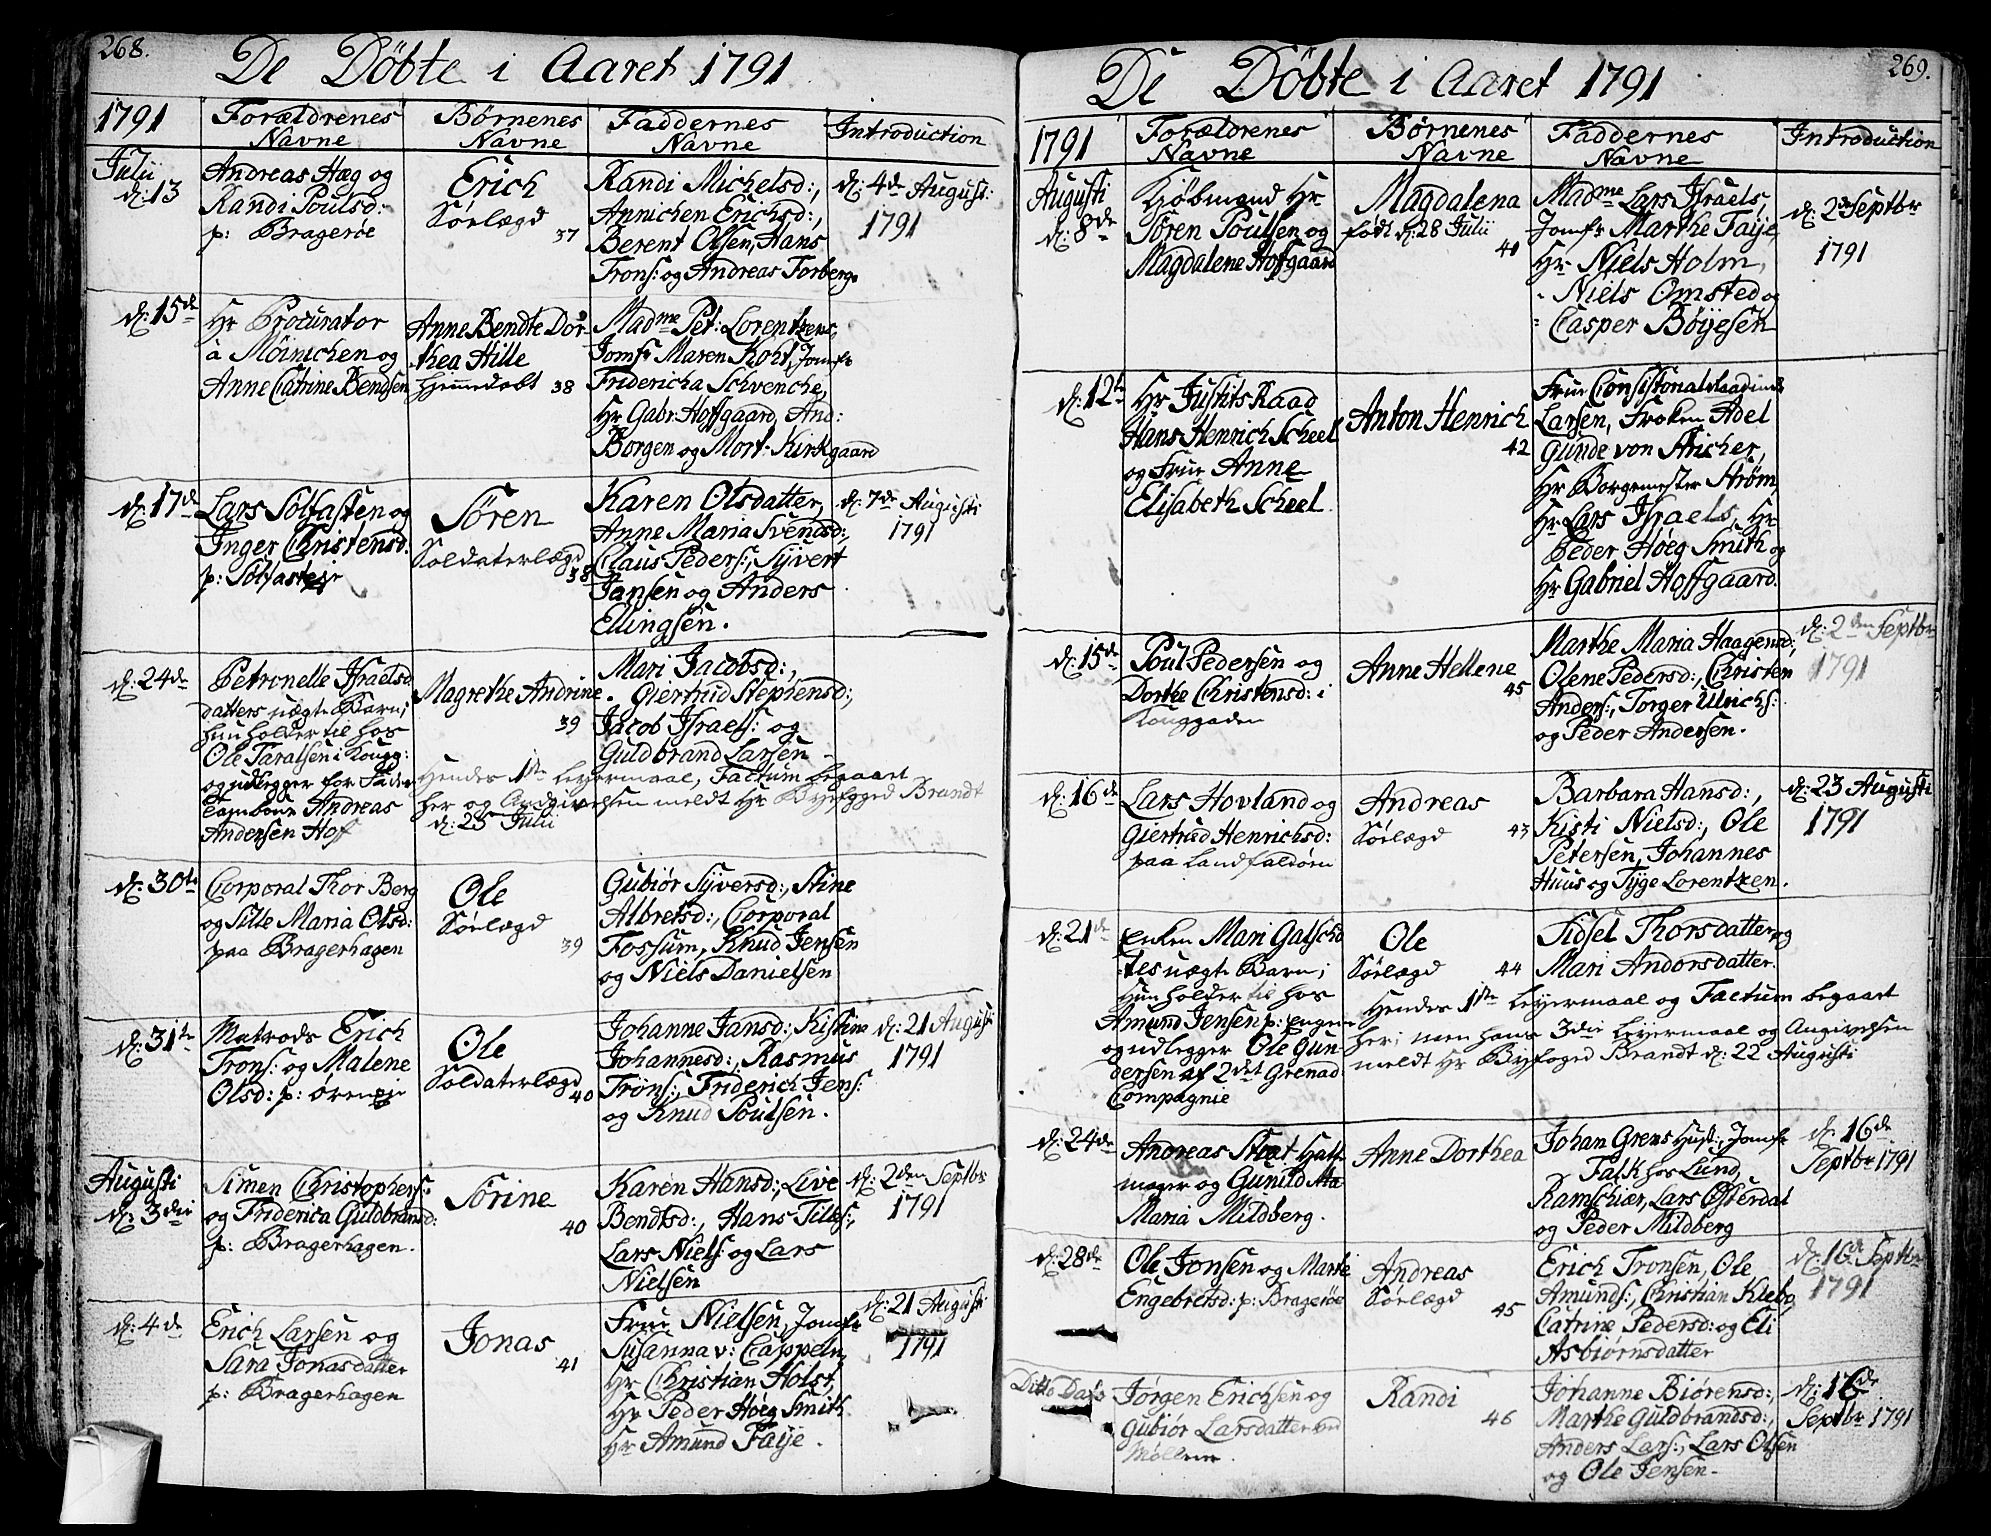 268.
De Döbte i Aaret 1791
1791
Forældrenes
Navne
Börnenes
Navne
Faddernes
Navne
Introduction
Julii
d: 13
Andreas Hæg og
Randi Poulsd:
p: Bragerøe
Erich
Sörlægd
37
Randi Michelsd:,
Annichen Erichsd:,
Berent Olsen, Hans
Trons: og Andreas Forberg.
d: 4de Augusti
1791
d: 15de
Hr Procurator
a Möinichen og
Anne Catrine Bendsen
Anne Bendte Dor-
thea Hille
Hiemedøbt 38
Madme Pet: Lorentzens,
Jomfr Maren Koht, Jomfr
Fridericha Schvenche,
Hr Gabr: Hoffgaard, And:
Borgen og Mort: Kirkgaard
d: 17de
Lars Solfasten og
Inger Christensd:
p: Solfasteje
Sören
Soldaterlægd
38
Karen Olsdatter,
Anne Maria Svendsd:,
Claus Peders:, Syvert
Jansen og Anders
Ellingsen.
d: 7de Augusti
1791
d: 24de
Petronelle Israels
datters uægte Barn;
hun holder til hos
Ole Taralsen i Kongg:
og udlegger for Fader
Andreas
Andersen Hoff
Magrethe Andrine.
39
Mari Jacobsd:,
Giertrud Stephensd:,
Jacob Israels: og
Guldbrand Larsen
Hendes 1te Leyermaal, Factum begaaet
her og Angivelsen meldt Hr Byefoged Brandt
d: 25 Julii
d: 30te
Corporal Thor Berg
og Sille Maria Olsd:
paa Bragerhagen
Ole
Sörlægd
39
Gubiør Syversd:, Stine
Albretsd:, Corporal
Fossum, Knud Jensen
og Niels Danielsen
d: 31te
Matrods Erich
Trons: og Malene
Olsd: p: ørenje
Ole
Soldaterlægd
40
Johanne Jansd:, Kistine
Johannesd:, Rasmus
Trons:, Friderich Jens:
og Knud Poulsen.
d: 21 Augusti
1791
Augusti
d: 3die
Simen Christophers:
og Friderica Guldbrandsd:
p: Bragerhagen.
Sörine
40
Karen Hansd:, Live
Bendtsd:, Hans Tilles:,
Lars Niels: og Lars
Nielsen
d: 2den Septbr
1791
d: 4de
Erich Larsen og
Sara Jonasdatter
p: Bragerhagen
Jonas
41
Frue Nielsen, Jomfr
Susanna v: Cappeln,
Hr Christian Holst,
Hr Peder Höeg Smith
Hr Amund Faije.
d: 21 Augusti
1791
269.
De Döbte i Aaret 1791
1791
Forældrenes
Navne
Börnenes
Navne
Faddernes
Navne
Introduction
Augusti
d: 8de
Kiøbmand Hr
Sören Poulsen og
Magdalene Hoffgaard
Magdalena
født d: 28 Julii
41
Madme Lars Israels,
Jomfr Marthe Faije,
Hr Niels Holm,
- Niels Omsted og
- Casper Böyesen
d: 2den Septbr
1791
d: 12te
Hr Justits Raad
Hans Henrich Scheel
og Frue Anne
Elisabeth Scheel.
Anton Henrich
42
Frue
Larsen, Froken Adel
gunde von
Hr Borgemester Ström
Hr Lars Israels, Hr
Peder Höeg Smith og
Hr Gabriel Hoffgaard.
d: 15de
Poul Pedersen og
Dorthe Christensd: i
Konggaden
Anne Hellene
45
Marthe Maria Haagensd:,
Olene Pedersd:, Christen
Anders:, Torger Ulrichs:
og Peder Andersen.
d: 2den Septbr
1791
d: 16de
Lars Hovland og
Giertrud Henrichsd:
paa Landfaldøen
Andreas
Sörlægd
43
Barbara Hansd:,
Kisti Nielsd:, Ole
Petersen, Johannes
Huus og Tyge Lorentzen.
d: 23 Augusti
1791
d: 21de
Enken Mari
uægte Barn;
Hun holder til hos
Amund Jensen p:
og udlegger Ole Gun-
dersen af 2det Grenad
Compagnie
Ole
Sörlægd
44
Sidsel Thorsdatter og
Mari Andorsdatter.
Hendes 1te Leyermaal og Factum begaaet
her; men hans 3die Leyermaal og Angivelsen
meldt Hr Byfoged Brandt d: 22 Augusti
d: 24de
Andreas Stræt Hatt
mager og Gunild
Maria Mildberg.
Anne Dorthea
Johan Grens Hust:, Jomfr
Falk hos Lund,
Ramschiær, Lars Østerdal
og Peder Mildberg
d: 16de
Septbr 1791
d: 28de
Ole Jonsen og Marte
Engebretsd: p: Bragerøe
Andreas
Sörlægd
45
Erich Tronsen, Ole
Amunds:, Christian Klebo,
Catrine Pedersd: og Eli
Asbiørnsdatter
d: 16de Septbr
1791
Ditto Dato
Jørgen Erichsen og
Gubiør Larsdatter
Møllene.
Randi
46
Johanne Biörensd:,
Marthe Guldbrandsd:,
Anders Lars:, Lars Olsen
og Ole Jensen.
d: 16de
Septbr 1791